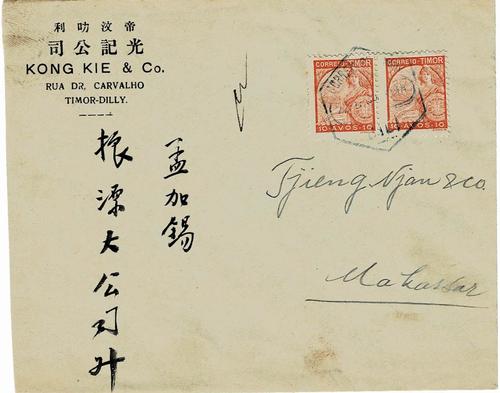 利叻汶帝
司公記光
KONG KIE & Co.
RUA DR. CARVALHO
TIMOR-DILLY.
CORREIO TIMOR
10 AVOS 10
CORREIO TIMOR
10 AVOS 10
孟加錫
振源大公司升
Tjieng Njan & co.
Makassar